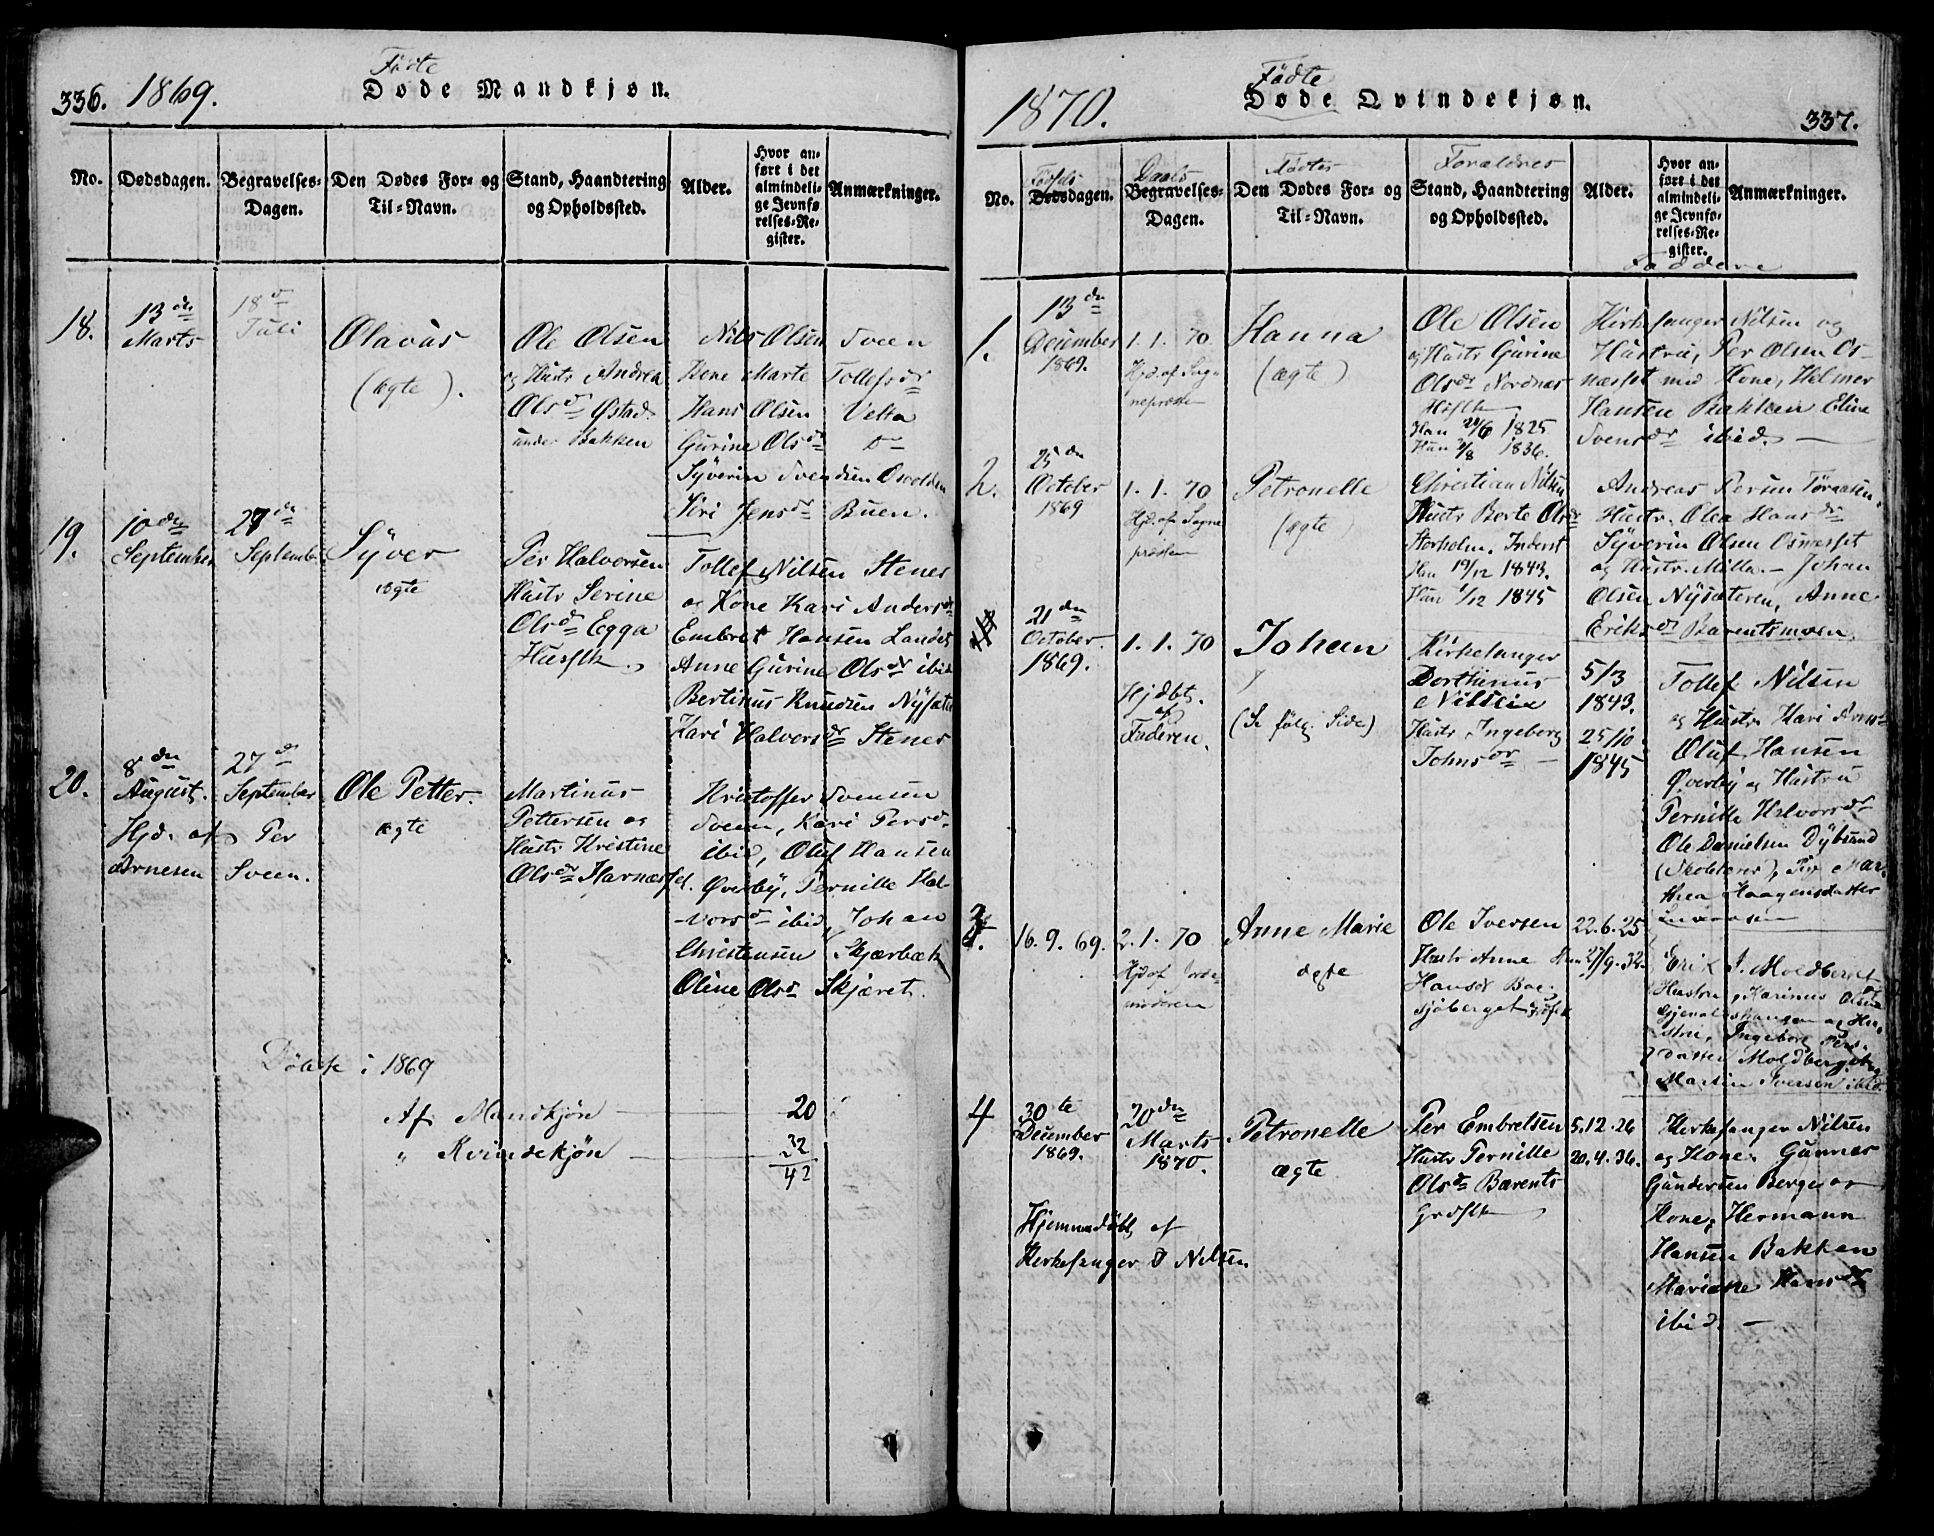 336. 1869.
Fødte
Døde Mandkjøn.
No.
Dødsdagen.
Begravelses-
Dagen.
Den Dødes For- og
Til-Navn.
Stand, Haandtering
og Opholdssted.
Alder.
Hvor an-
ført i det
almindeli-
ge Jevnfø-
relses-Re-
gister.
Anmærkninger.
18.
13de
Marts
18d
Juli
Olavus
(ægte).
Ole Olsen
og Hustr Andrea
Olsdr Østad
under Bakken
Nils Olsen Sveen
Kone Marte Tollefsdr
Hans Olsen Velta
Gurine Olsdr Do
Syverin Svendsen Osvolden
Siri Jensdr Buen.
19.
10de
September
27de
Septemb
Syver
ægte
Per Halvorsen
Hustr Serine
Olsdr Egga
Husflk.
Tollef Nilsen Stener
og Kone Kari Andersdr
Embret Hansen Landet
Anne Gurine Olsdr ibid
Bertinus Knudsen Nysæt
Kari Halvorsdr Stener
20.
8de
August.
Hjd. af Per
Arnesen Sveen.
27d
September
Ole Petter.
ægte
Martinus
Pettersen og
Hustr Kristine
Olsdr Harnæs
Kristoffer Svensen
Sveen, Kari Persd.
ibid, Oluf Hansen
Øverby, Pernille Hal-
vorsd ibid, Johan
Christensen Skjærbæk
Oline Olsd Skjæret.
Døbte i 1869
Af Mandkjøn 20
" Kvindekjøn 32
42
1870.
Fødte
Døde Qvindekjøn.
337.
No.
Fødsels
Dødsdagen.
Daabs
Begravelses-
Dagen.
Fødtes
Den Dødes For- og
Til-Navn.
Forældres
Stand, Haandtering
og Opholdssted.
Alder.
Hvor an-
ført i det
almindeli-
ge Jevnfø-
relses-Re-
gister.
Anmærkninger.
Faddere
1.
13de
December
1869.
1. 1. 70
Hjd. af Sog-
nepræsten
Hanna
(ægte)
Ole Olsen
og Hustr Gurine
Olsdr Nordnæs
Husflk
Han 29/6 1825
Hun 2/8 1836.
Kirkesanger Nilsen og
Hustru, Per Olsen Os-
næsset med Kone, Helmer
Hansen Bakken Eline
Svensdr ibid.
2.
25de
October
1869
1. 1. 70
Hjd. af Sogne
præsten
Petronelle
(ægte)
Christian Nilsen
Hustr Berte Olsdr
Storholm, Inderst
Han 19/12 1843.
Hun 1/12 1845
Andreas Persen Toraasen
Hustr. Olea Hansdr
Syverin Olsen Osnæsset
og Hustr. Milla. - Johan
Olsen Nysæteren, Anne
Eriksdr Barentsmoen.
21de
October.
1869.
1. 1. 70
Hjdbt.
af
Faderen.
Johan
(Se følg. Side)
Kirkesanger
Dorthenus
Nilsen
Hustr Ingeborg
Johnsdr
5/3
1843.
25/10
1845
Tollef Nilsen
og Hustr Kari
Oluf Hansen
Øverby og Hustru
Pernille Halvorsdr
Ole Danielsen Dybsund
(Skolelærer), Mar-
thea Haagensdatter
3.
16. 9. 69.
2. 1. 70
Hjd af
Anne Marie
ægte
Ole Iversen
Hustr Anne
Hansdr
sjøberget
22. 6. 25
27/9. 32.
Erik J. Moldberget
Hustru, Karinus Olsen
og Hu-
stru, Ingeborg Pers-
datter Moldberget og
Martin Iversen ibid.
4
30te
December
1869.
20de
Marts
1870.
Hjemmedøbt af
Kirkesanger D Nilsen
Petronelle
ægte
Per Embretsen
Hustr Pernille
Olsdr Bærents
Grdflk
5. 12. 26
20. 4. 36.
Kirkesanger Nilsen
og Kone, Gunner
Gundersen Berge og
Kone, Hermann
Hansen Bakken
Mariane Hansdr
ibid.